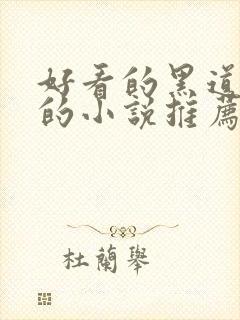 好看的黑道
的小說推薦
杜蘭舉